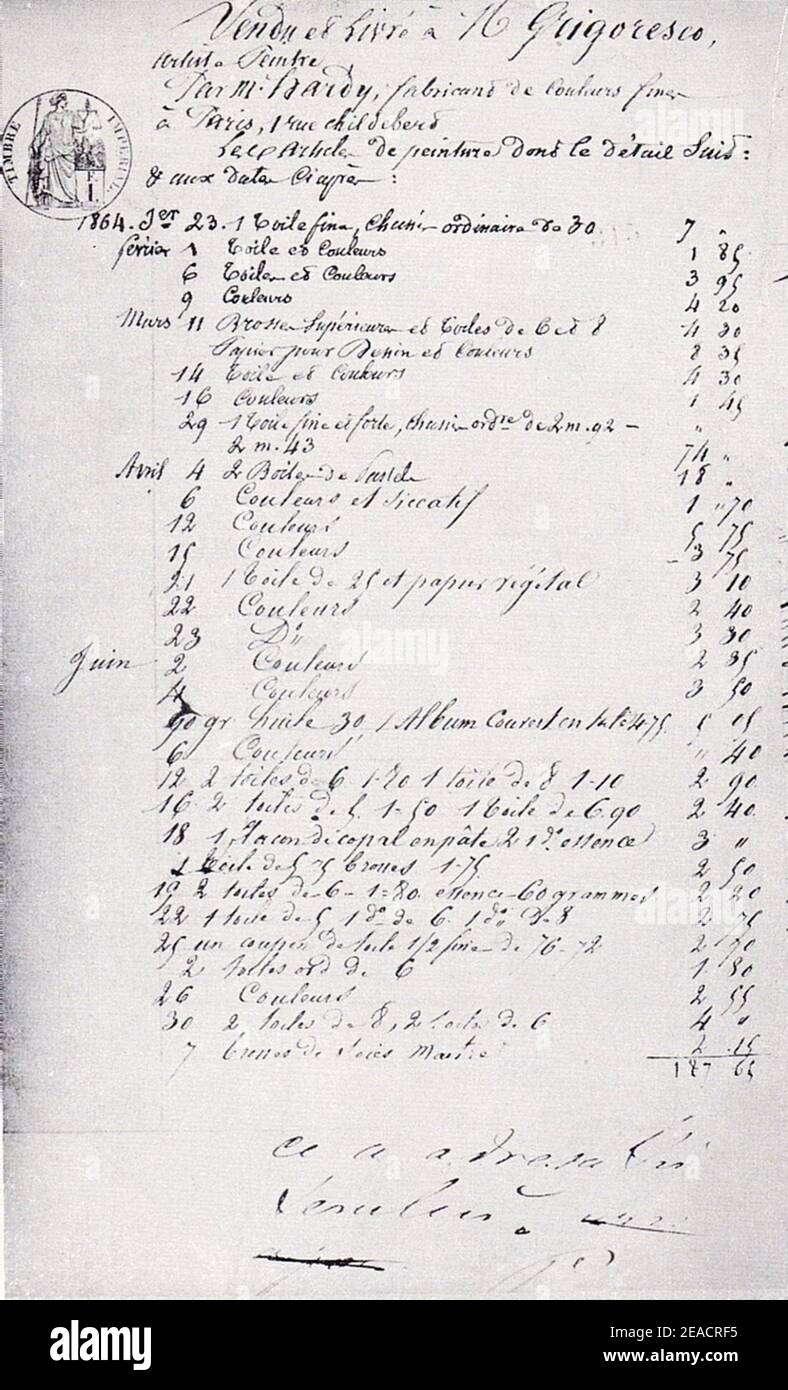 Vendu et Livré à Mr Grigoresco,
Artiste Peintre
Par Mr Hardy, fabricant de Couleurs fines
à Paris, 1 rue Childebert
Les Articles de peinture dont le détail Suit :
& aux dates Ci après :
TIMBRE IMPERIAL
1864. Jer 23. 1 Toile fine, chassis ordinaire de 30. 7 "
février 1 Toile et Couleurs 1 85
6 Toiles et Couleurs 3 95
9 Couleurs 4 20
Mars 11 Brosses Supérieures et Toiles de 6 et 8 4 30
Papier pour Dessin et Couleurs 8 35
14 Toile et Couleurs 4 30
16 Couleurs 1 45
29 1 Toile fine et forte, chassis ordre de 2 m. 92 - "
2 m. 43 74 "
Avril 4 2 Boites de Pastels 18 "
6 Couleurs et Siccatif 1 "70
12 Couleurs 5 75
15 Couleurs 3 75
21 1 Toile de 25 et papier végétal 3 10
22 Couleurs 2 40
23 Do 3 30
Juin 2 Couleurs 2 35
4 Couleurs 3 50
90 gr huile 30, 1 Album Couvert en toile 475 5 05
6 Couleurs " 40
12 2 toiles de 6 1-80 1 toile de 8 1-10 2 90
16 2 toiles de 5. 1-50 1 Toile de 6. 90 2 40
18 1 flacon de copal en pâte 2 1 do essence 3 "
1 Toile de 5 75 Brosses 1-75. 2 50
19 2 toiles de 6 - 1=80. essence 60 grammes 2 20
22 1 toile de 5 1 do de 6. 1 do de 8 2 75
25 un coupon de toile 1/2 fine de 76-72 2 70
2 toiles ord de 6 1 80
26 Couleurs 2 55
30 2 toiles de 8, 2 toiles de 6 4 "
7 brosses de soies 2 .15
187 65
alamy
Image ID: 2EACRF5
www.alamy.com